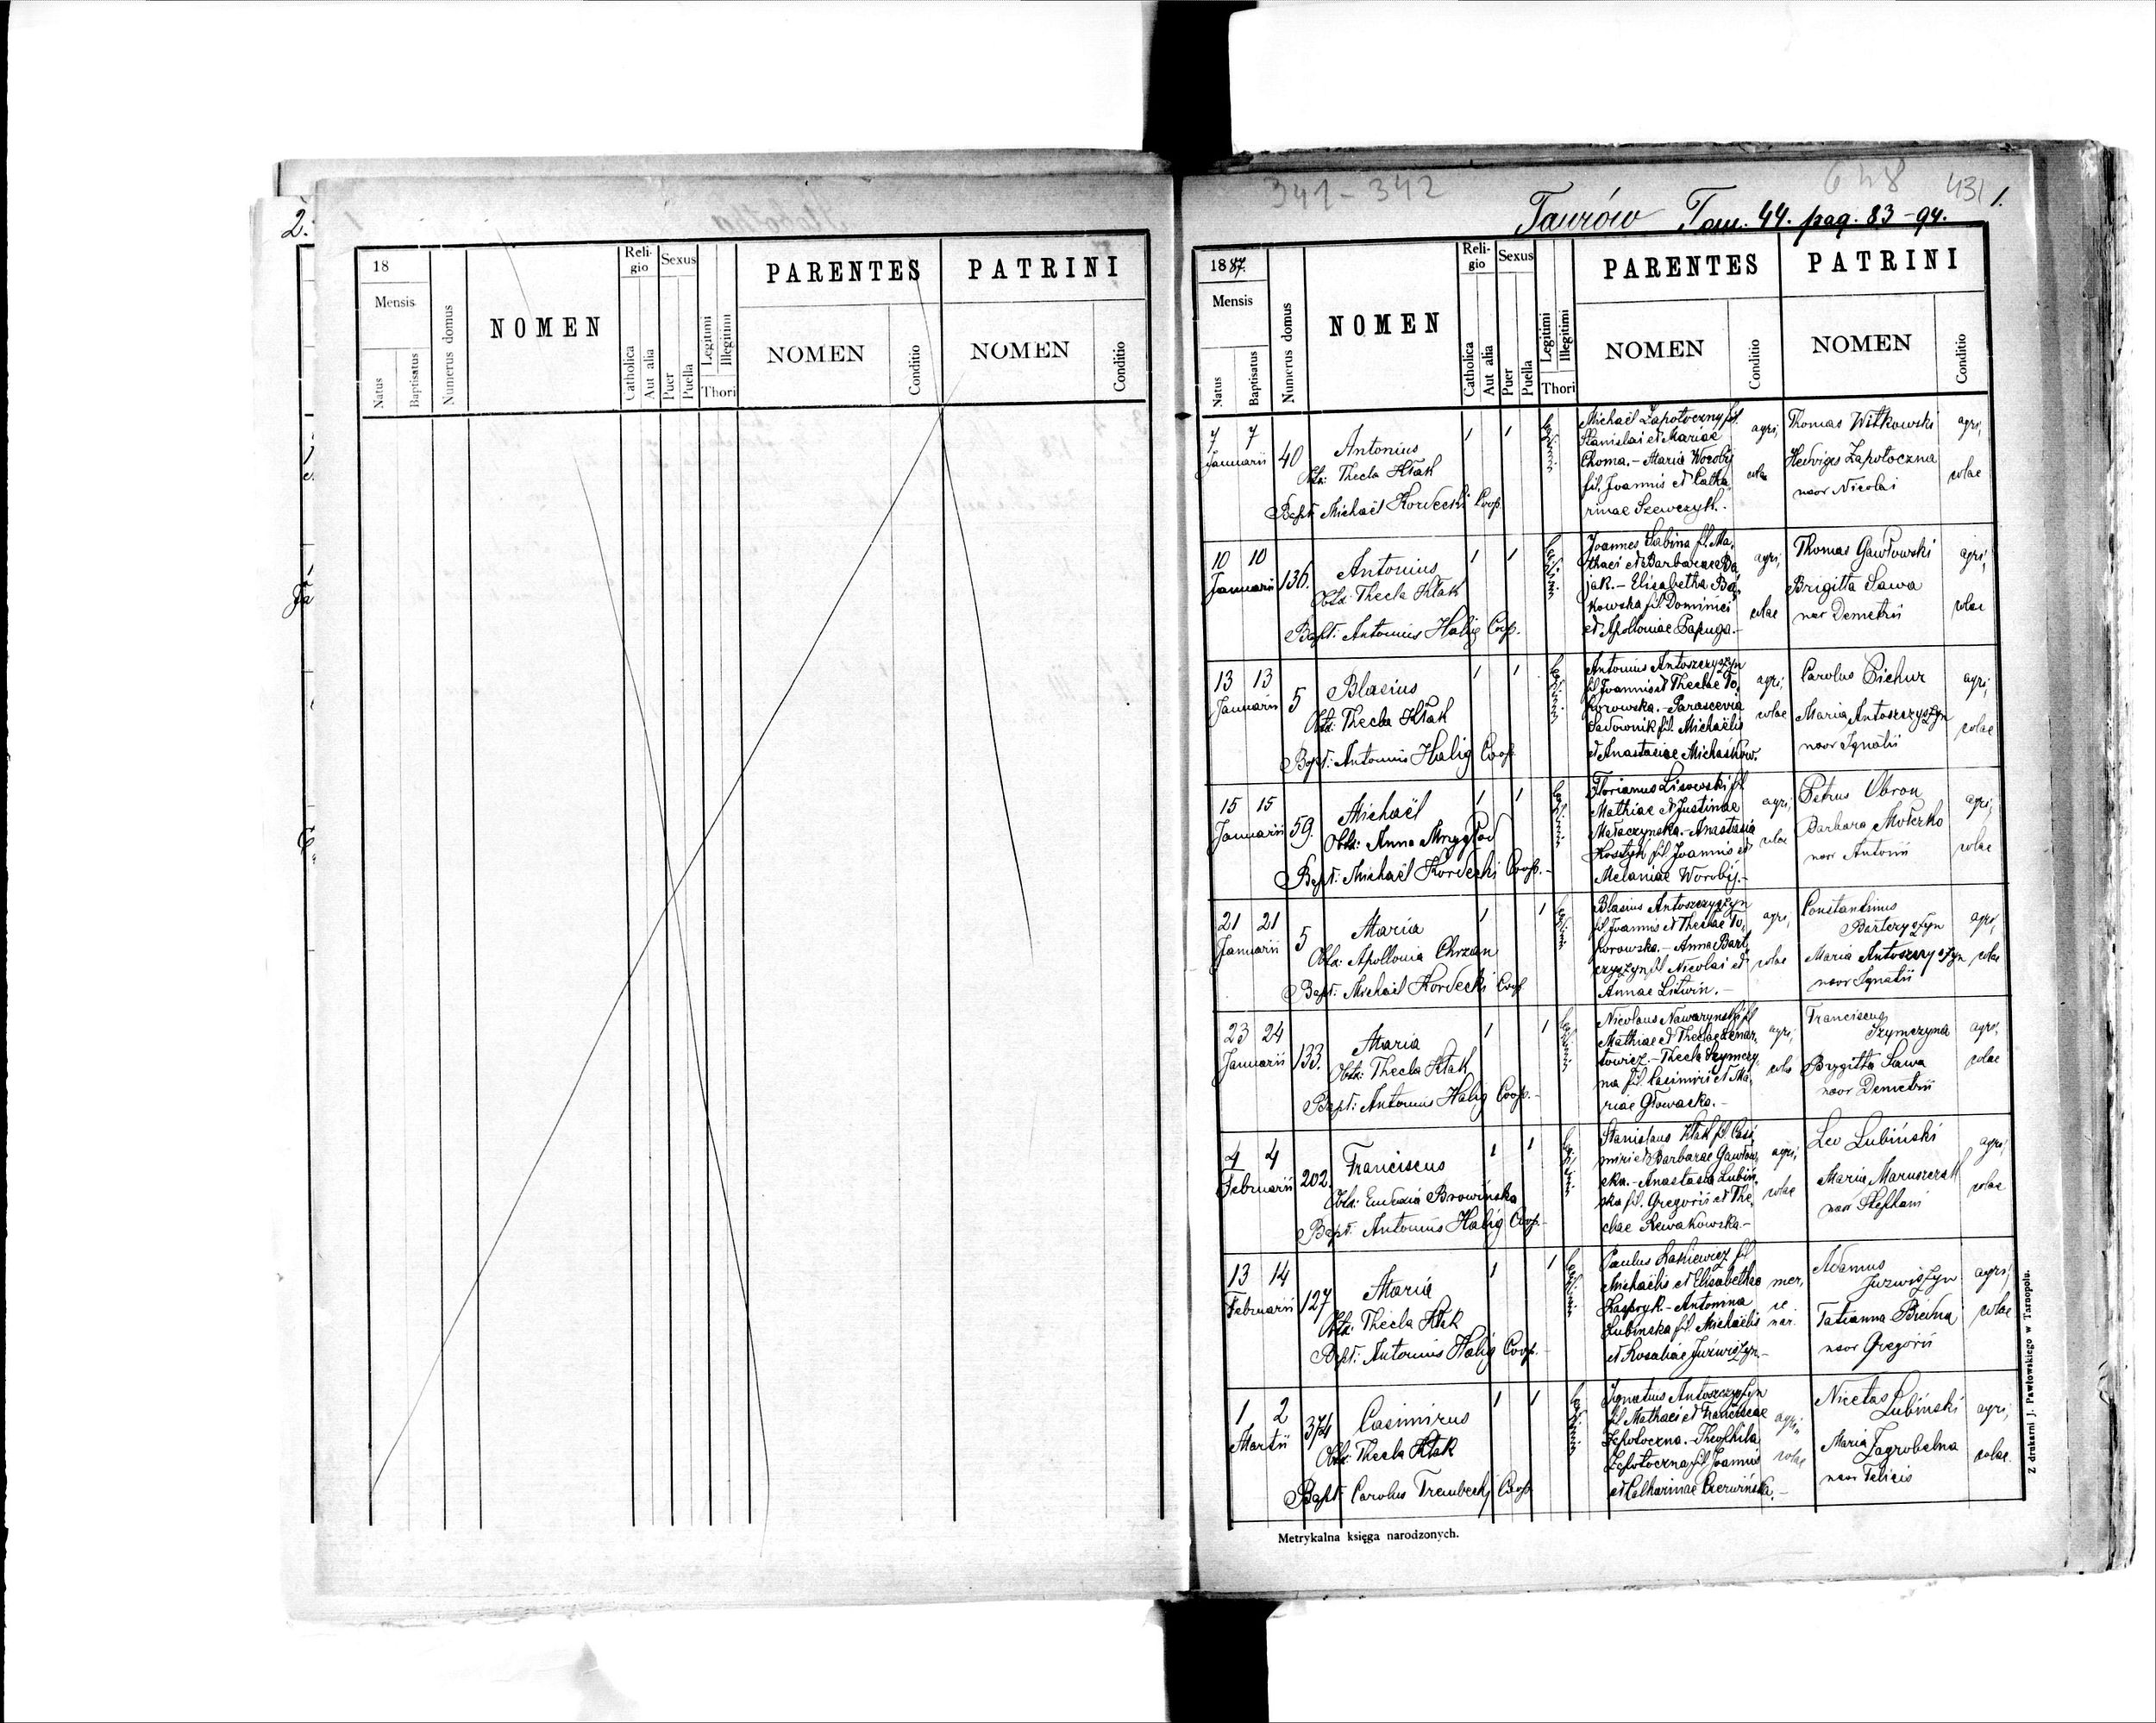 2.
18
Mensis
Natus
Baptisatus
Numerus domus
NOMEN
Reli-
gio
Catholica
Aut alia
Sexus
Puer
Puella
Legitimi
Illegitimi
Thori
PARENTES
NOMEN
Conditio
PATRINI
NOMEN
Conditio
341-342
431 1.
Taurów Tom. 44. pag. 83-94.
1887.
Mensis
Natus
Baptisatus
Numerus domus
NOMEN
Reli-
gio
Catholica
Aut alia
Sexus
Puer
Puella
Legitimi
Illegitimi
Thori
PARENTES
NOMEN
Conditio
PATRINI
NOMEN
Conditio
7 7
Januarii
40
Antonius
Obst: Thecla Kłak
Bapt: Michaël Kordecki Coop.
1 1
Michaël Zapotoczny fil.
Stanislai et Mariae
Choma. - Maria Worobij
fil. Joannis et Catha
rinae Szewczyk. -
agri,
colae
Thomas Witkowski
Hedviges Zapotoczna
uxor Nicolai
agri,
colae
10 10
Januarii
136.
Antonius
Obst: Thecla Kłak
Bapt: Antonius Halig Coop.
1 1
Joannes Babina fil. Ma,
thaei et Barbarae Ba
jak. - Elisabetha Bą,
kowska fil. Dominici
et Apolloniae Papuga. -
agri,
colae
Thomas Gawłowski
Brigitta Sawa
uxor Demetrii
agri,
colae
13 13
Januarii
5
Blasius
Obst: Thecla Kłak
Bapt: Antonius Halig Coop
1 1
Antonius Antoszczyszyn
fil. Joannis et Theclae To,
korowska. - Parascevia
Sadownik fil. Michaëlis
et Anastasiae Michaśków.
agri,
colae
Carolus Pichur
Maria Antoszczyszyn
uxor Ignatii
agri,
colae
15 15
Januarii
59.
Michaël
Obst: Anna Mrygłod
Bapt: Michaël Kordecki Coop. -
1 1
Florianus Lisowski fil
Mathiae et Justinae
Małaczynska. - Anastasia
Kostyk fil. Joannis et
Melaniae Worobij. -
agri,
colae
Petrus Obron
Barbara Mołczko
uxor Antonii
agri,
colae
21 21
Januarii
5
Maria
Obst: Apollonia Chrzan
Bapt: Michaël Kordecki Coop
1 1
Blasius Antoszczyszyn
fil. Joannis et Theclae To,
korowska. - Anna Bart
czyszyn fil. Nicolai et
Annae Litwin. -
agri,
colae
Constantinus
Barteryszyn
Maria Antoszczyszyn
uxor Ignatii
agri,
colae
23 24
Januarii
133.
Maria
Obst: Thecla Kłak
Bapt: Antonius Halig Coop. -
1 1
Nicolaus Nawarynski fil
Mathiae et Theclae Lenar,
towicz. - Thecla Szymczy
na fil. Casimiri et Ma
riae Głowacka. -
agri,
colae
Franciscus
Szymczyna
Brygitta Sawa
uxor Demetrii
agri,
colae
4 4
Februarii
202.
Franciscus
Obst: Eudoxia Browińska
Bapt: Antonius Halig Coop. -
1 1
Stanislaus Kłak fil. Casi,
miri et Barbarae Gawłow,
ska. - Anastasia Lubiń,
ska fil. Gregorii et The,
clae Rewakowska. -
agri,
colae
Leo Lubiński
Maria Maruszczak
uxor Stephani
agri,
colae
13 14
Februarii
127
Maria
Obst: Thecla Kłak
Bapt: Antonius Halig Coop. -
1 1
Paulus Laskiewicz fil
Michaëlis et Elisabethae
Kaspryk. - Antonina
Lubinska fil. Michaëlis
et Rosaliae Juzwiszyn. -
mer,
ce
nar.
Adamus
Juzwiszyn
Tatianna Bieńna
uxor Gregorii
agri,
colae
1 2
Martii
374
Casimirus
Obst: Thecla Kłak
Bapt: Carolus Trembecki Coop
1 1
Ignatius Antoszczyszyn
fil. Mathaei et Franciscae
Zapotoczna. - Theophila
Zapotoczna fil. Joannis
et Catharinae Czerwińska. -
agri,
colae
Nicetas
Lubiński
Maria Zagrobelna
uxor Felicis
agri,
colae.
Metrykalna księga narodzonych.
Z drukarni J. Pawłowskiego w Tarnopolu.